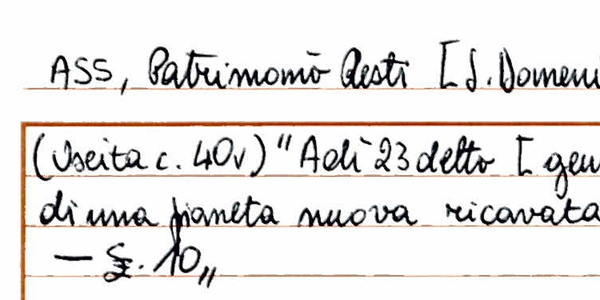 ASS, Patrimonio Resti [S. Domeni
(Uscita c. 40v) "Adì 23 detto [gen
di una pianeta nuova ricavata
— £. 10,,